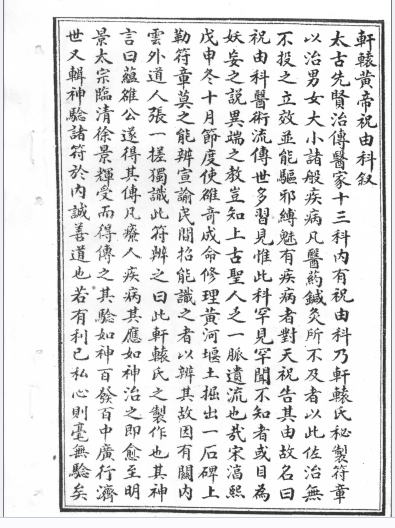 軒轅黃帝祝由科叙
太古先賢治傳醫家十三科內有祝由科乃軒轅氏秘製符章
以治男女大小諸般疾病凡醫藥鍼灸所不及者以此佐治無
不投之立效並能驅邪縛魅有疾病者對天祝告其由故名曰
祝由科醫術流傳世多習見惟此科罕見罕聞不知者或目為
妖妄之説異端之教豈知上古聖人之一脈遺流也哉宋淳熙
戊申冬十月節度使雒奇成命修理黃河堰土掘出一石碑上
勒符章莫之能辨宣諭民間招能識之者以辨其故因有闗內
雲外道人張一槎獨識此符辨之曰此軒轅氏之製作也其神
言曰蘊雒公遂得其傳凡療人疾病其應如神治之即愈至明
景太宗臨清徐景輝受而得傳之其驗如神百發百中廣行濟
世又輯神驗諸符於內誠善道也若有利己私心則毫無驗矣